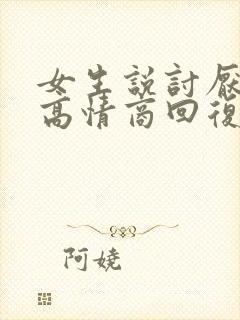 女生説討厭
高情商回復
阿娆